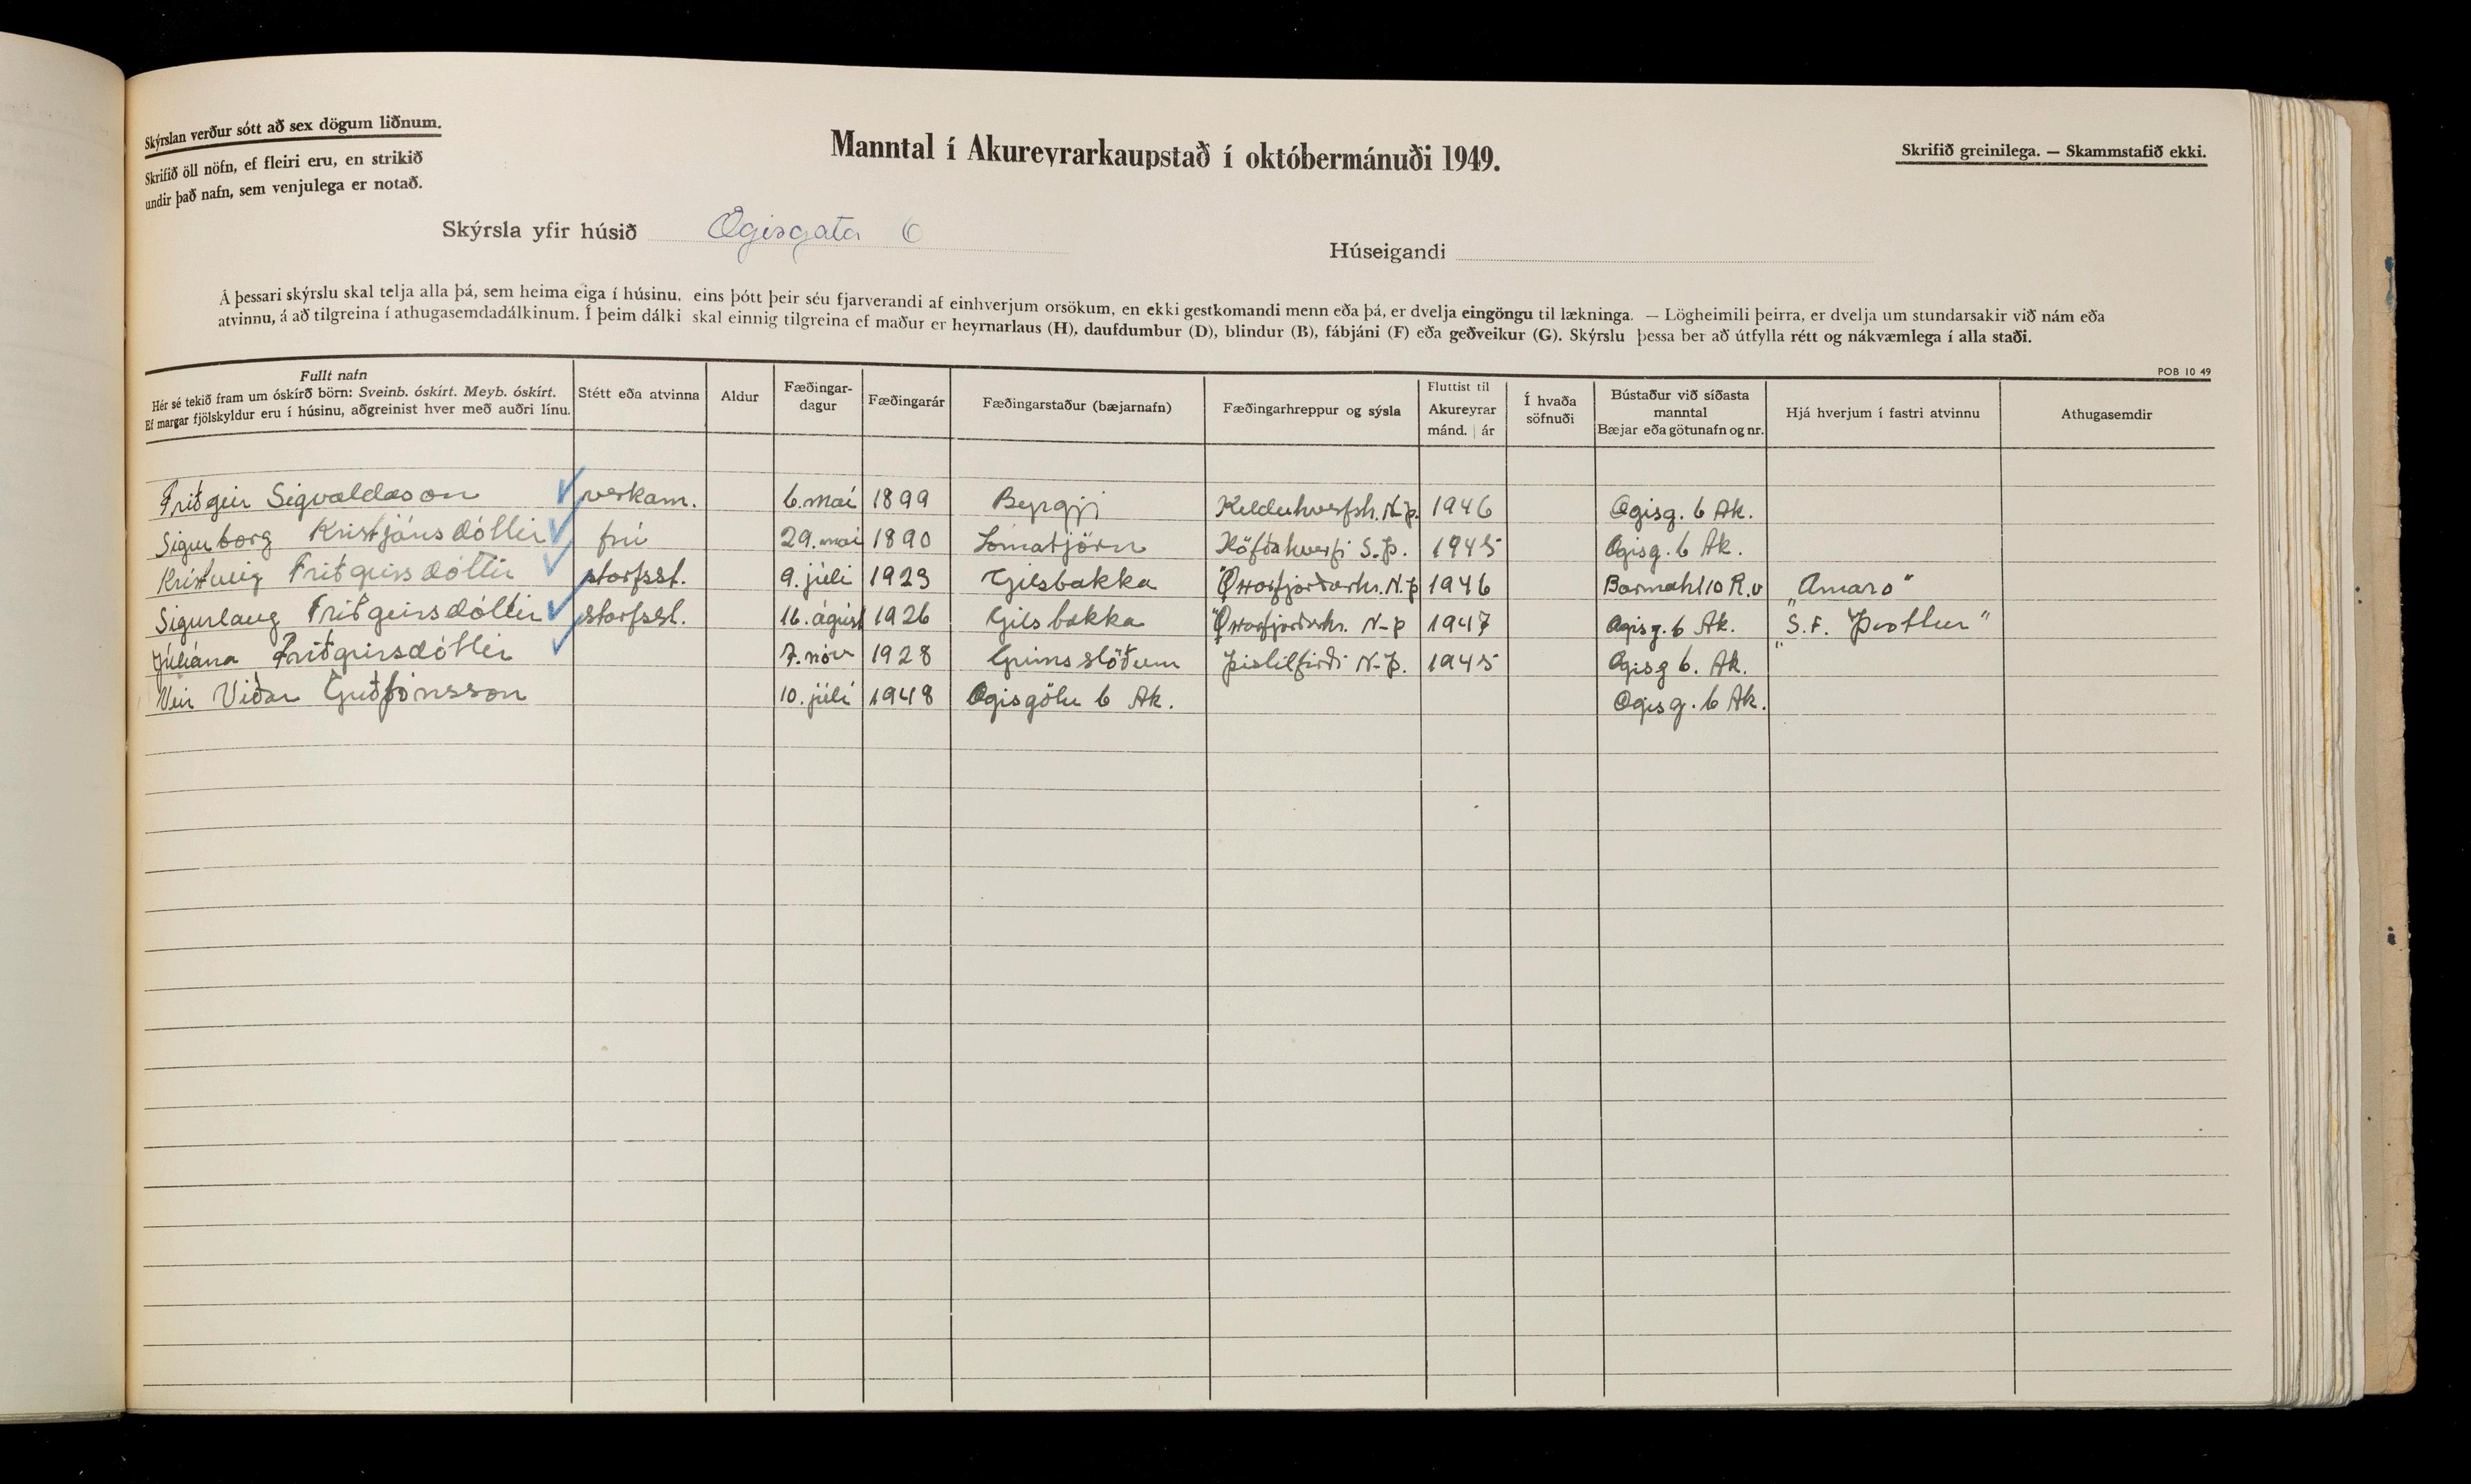 Skýrslan verður sótt að sex dögum liðnum.
Skrifið öll nöfn, ef fleiri eru, en strikið
undir það nafn, sem venjulega er notað.
Manntal í Akureyrarkaupstað í októbermánuði 1949.
Skrifið greinilega. — Skammstafið ekki.
Skýrsla yfir húsið Ægisgata 6
Húseigandi
Á þessari skýrslu skal telja alla þá, sem heima eiga í húsinu, eins þótt þeir séu fjarverandi af einhverjum orsökum, en ekki gestkomandi menn eða þá, er dvelja eingöngu til lækninga. — Lögheimili þeirra, er dvelja um stundarsakir við nám eða
atvinnu, á að tilgreina í athugasemdadálkinum. Í þeim dálki skal einnig tilgreina ef maður er heyrnarlaus (H), daufdumbur (D), blindur (B), fábjáni (F) eða geðveikur (G). Skýrslu þessa ber að útfylla rétt og nákvæmlega í alla staði.
POB 10 49
Fullt nafn
Hér sé tekið fram um óskírð börn: Sveinb. óskírt. Meyb. óskírt.
Ef margar fjölskyldur eru í húsinu, aðgreinist hver með auðri línu.
Stétt eða atvinna
Aldur
Fæðingar-
dagur
Fæðingarár
Fæðingarstaður (bæjarnafn)
Fæðingarhreppur og sýsla
Fluttist til
Akureyrar
mánd. | ár
Í hvaða
söfnuði
Bústaður við síðasta
manntal
Bæjar eða götunafn og nr.
Hjá hverjum í fastri atvinnu
Athugasemdir
Friðgeir Sigvaldason verkam. 6. maí 1899 Byrgji Kelduhverfsh. N-Þ. 1946 Ægisg. 6 Ak.
Sigurborg Kristjánsdóttir frú 29. maí 1890 Lómatjörn Höfðahverfi S.Þ. 1945 Ægisg. 6 Ak.
Kristveig Friðgeirsdóttir starfsst. 9. júli 1923 Gilsbakka Öxarfjarðarhr. N.Þ 1946 Barmahl 10 R.v „Amaro"
Sigurlaug Friðgeirsdóttir starfsst. 16. ágúst 1926 Gilsbakka Öxarfjarðarhr. N-Þ 1947 Ægisg. 6 Ak. „S.F. Þvottur"
Júliána Friðgeirsdóttir 7. nóv 1928 Grímsstöðum Þistilfirði N-Þ. 1945 Ægisg 6. Ak.
Viðar Guðjónsson 10. júlí 1948 Ægisgötu 6 Ak. Ægisg. 6 Ak.